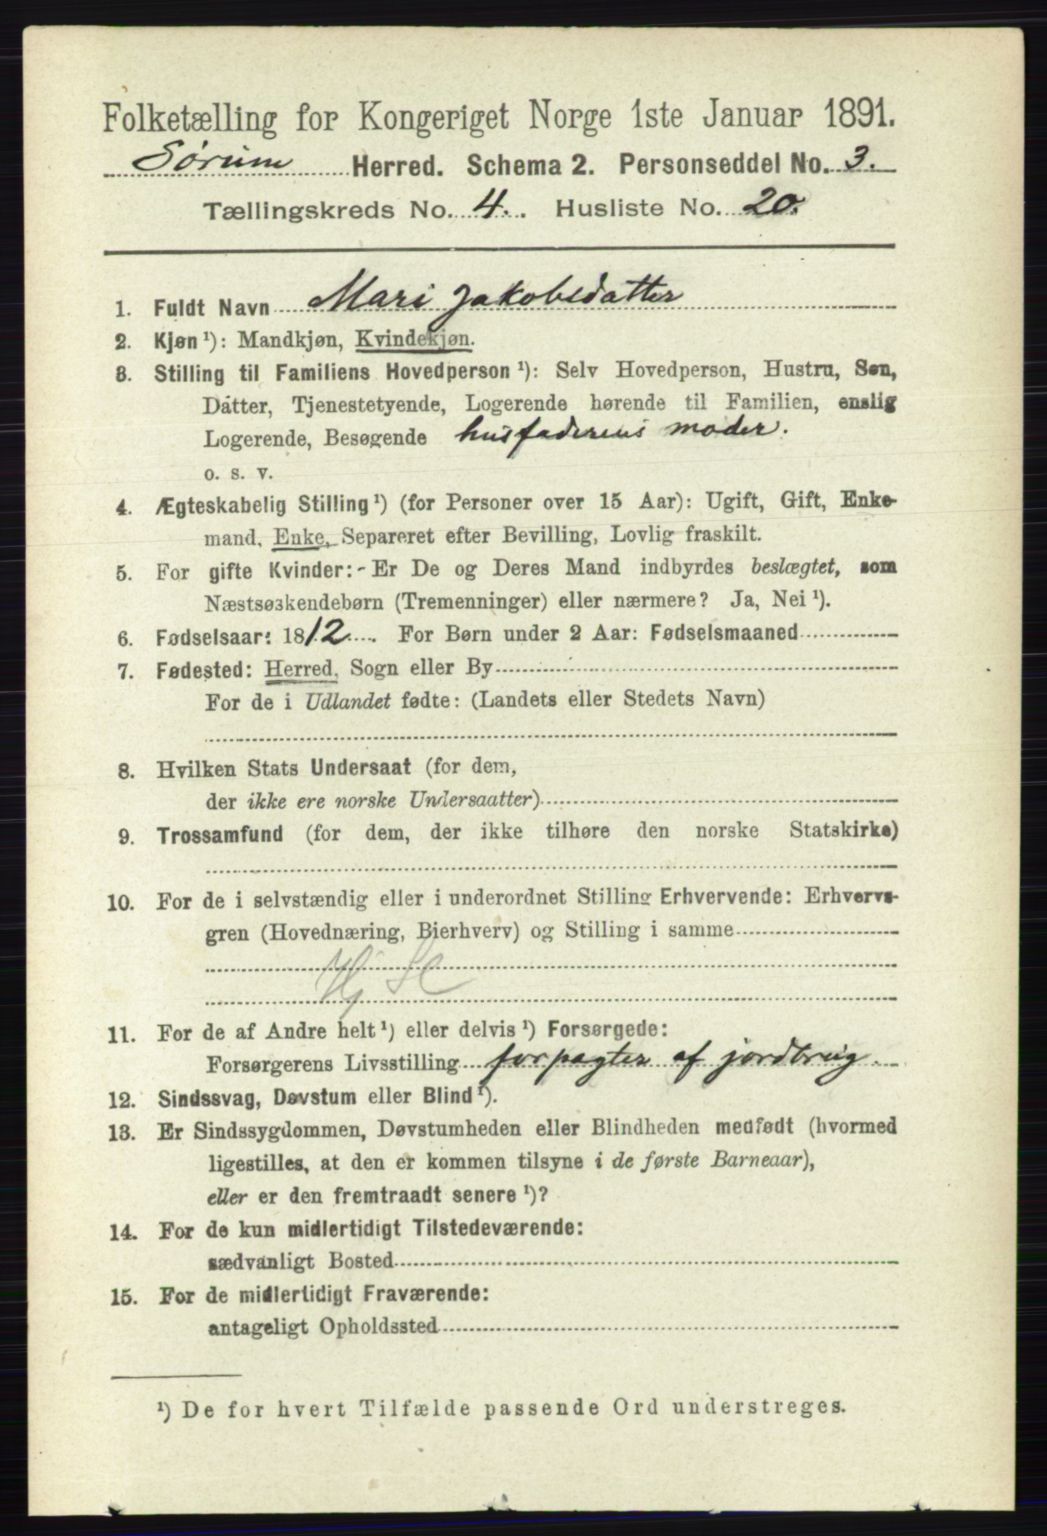 Folketælling for Kongeriget Norge 1ste Januar 1891.
Sørum Herred. Schema 2. Personseddel No. 3.
Tællingskreds No. 4. Husliste No. 20.
1. Fuldt Navn Mari Jakobsdatter
2. Kjøn ¹): Mandkjøn, Kvindekjøn.
3. Stilling til Familiens Hovedperson ¹): Selv Hovedperson, Hustru, Søn,
Datter, Tjenestetyende, Logerende hørende til Familien, enslig
Logerende, Besøgende husfaderens moder.
o. s. v.
4. Ægteskabelig Stilling ¹) (for Personer over 15 Aar): Ugift, Gift, Enke-
mand, Enke, Separeret efter Bevilling, Lovlig fraskilt.
5. For gifte Kvinder: - Er De og Deres Mand indbyrdes beslægtet, som
Næstsøskendebørn (Tremenninger) eller nærmere? Ja, Nei ¹).
6. Fødselsaar: 1812. For Børn under 2 Aar: Fødselsmaaned
7. Fødested: Herred, Sogn eller By
For de i Udlandet fødte: (Landets eller Stedets Navn)
8. Hvilken Stats Undersaat (for dem,
der ikke ere norske Undersaatter)
9. Trossamfund (for dem, der ikke tilhøre den norske Statskirke)
10. For de i selvstændig eller i underordnet Stilling Erhvervende: Erhvervs-
gren (Hovednæring, Bierhverv) og Stilling i samme
11. For de af Andre helt ¹) eller delvis ¹) Forsørgede:
Forsørgerens Livsstilling forpagter af jordbrug.
12. Sindssvag, Døvstum eller Blind ¹).
13. Er Sindssygdommen, Døvstumheden eller Blindheden medfødt (hvormed
ligestilles, at den er kommen tilsyne i de første Barneaar),
eller er den fremtraadt senere ¹)?
14. For de kun midlertidigt Tilstedeværende:
sædvanligt Bosted
15. For de midlertidigt Fraværende:
antageligt Opholdssted
¹) De for hvert Tilfælde passende Ord understreges.